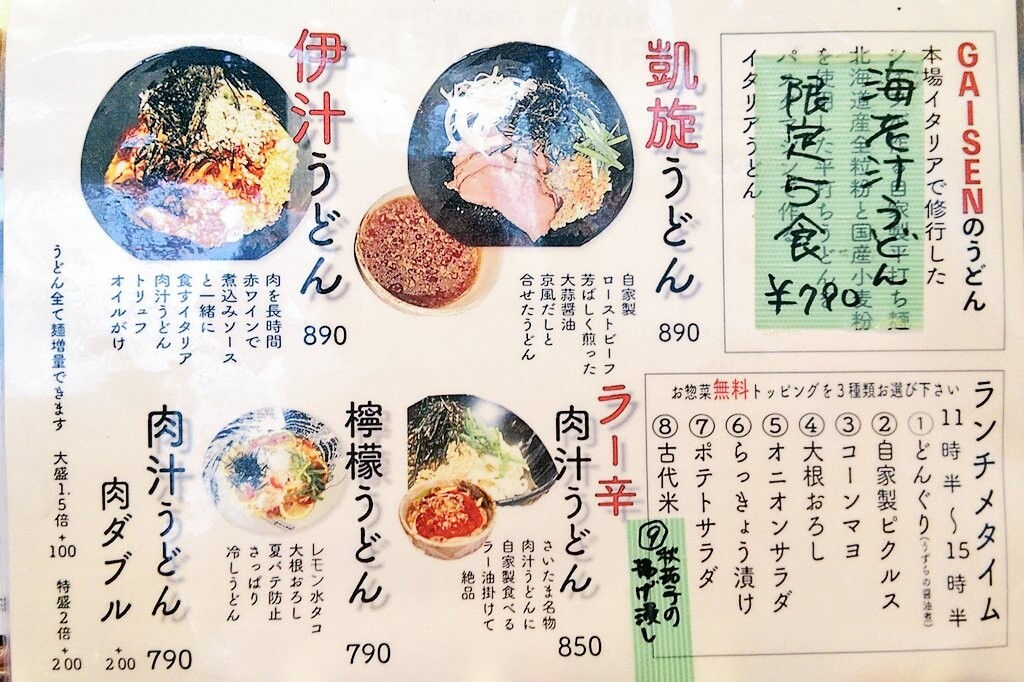 GAISENのうどん
本場イタリアで修行した
自家製平打ち麺
北海道産全粒粉と国産小麦粉
を使用した平打ちうどん
イタリアうどん
限定5食
¥790
凱旋うどん
自家製
ローストビーフ
芳ばしく煎った
大蒜醤油
京風だしと
合せたうどん
890
伊汁うどん
肉を長時間
赤ワインで
煮込みソース
と一緒に
食すイタリア
肉汁うどん
トリュフ
オイルがけ
890
ランチメタイム
11時半〜15時半
お惣菜無料トッピングを3種類お選び下さい
①どんぐり(うずらの醤油煮)
②自家製ピクルス
③コーンマヨ
④大根おろし
⑤オニオンサラダ
⑥らっきょう漬け
⑦ポテトサラダ
⑧古代米
⑨秋茄子の
揚げ浸し
ラー辛
肉汁うどん
さいたま名物
肉汁うどんに
自家製食べる
ラー油掛けて
絶品
850
檸檬うどん
レモン水タコ
大根おろし
夏バテ防止
さっぱり
冷しうどん
790
肉汁うどん
790
肉ダブル
+200
うどん全て麺増量できます 大盛1.5倍+100 特盛2倍+200